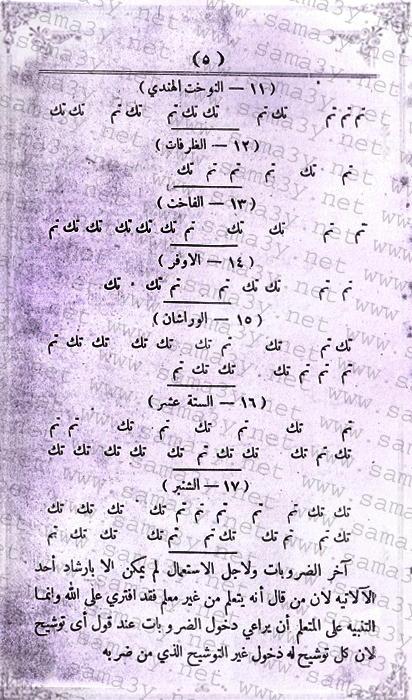 ( ٥ )
( ١١ – النوخت الهندي )
تم تم تم تك تم تك تك تم تك تم تك تك
( ١٢ – الظرفات )
تم تك تم تم تم تك
( ١٣ – الفاخت )
تم تم تك تك تم تك تك تك تك تك تم
( ١٤ – الاوفر )
تم تم تك تك تم تم تك تك
( ١٥ – الوراشان )
تك تم تك تم تك تك تك تك تك تك تم
تم تم تم تك تك تك تم
( ١٦ – الستة عشر )
تم تك تم تك تم تك تم تم
تك تم تك تك تك تم تك تك تك تك تك تك
( ١٧ – الشنبر )
تك تك تم تم تم تم تك تك تك تك تك
تك تم تك تم تك تم تك تك تك تك تم
آخر الضروبات ولاجل الاستعمال لم يمكن الا بارشاد أحد
الآلاتيه لان من قال أنه يتعلم من غير معلم فقد افتري على الله وانما
التنبيه على المتعلم أن يراعي دخول الضروبات عند قول أى توشيح
لان كل توشيح له دخول غير التوشيح الذي من ضربه
www.sama3y.net